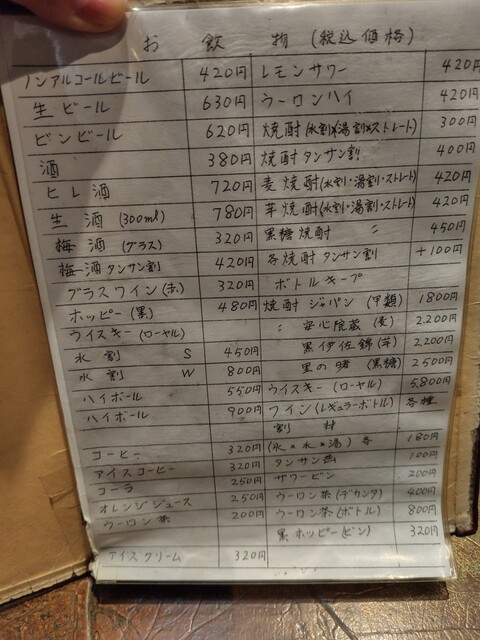 お飲物 (税込価格)
ノンアルコールビール 420円 レモンサワー 420円
生ビール 630円 ウーロンハイ 420円
ビンビール 620円 焼酎(水割・湯割・ストレート) 300円
酒 380円 焼酎タンサン割 400円
ヒレ酒 720円 麦焼酎(水割・湯割・ストレート) 420円
生酒 (300ml) 780円 芋焼酎(水割・湯割・ストレート) 420円
梅酒 (グラス) 320円 黒糖焼酎 〃 450円
梅酒タンサン割 420円 各焼酎タンサン割 +100円
グラスワイン(赤) 320円 ボトルキープ
ホッピー(黒) 480円 焼酎ジャパン (甲類) 1800円
ウイスキー(ローヤル) 〃 安心院蔵 (麦) 2,200円
水割 S 450円 黒伊佐錦(芋) 2,200円
水割 W 800円 里の曙 (黒糖) 2500円
ハイボール 550円 ウイスキー(ローヤル) 5,800円
ハイボール 900円 ワイン(レギュラーボトル) 各種
割材
コーヒー 320円 (氷・水・湯) 各 180円
アイスコーヒー 320円 タンサン 100円
コーラ 250円 サワービン 200円
オレンジジュース 250円 ウーロン茶(デカンタ) 400円
ウーロン茶 200円 ウーロン茶(ボトル) 800円
黒ホッピー(ビン) 320円
アイスクリーム 320円